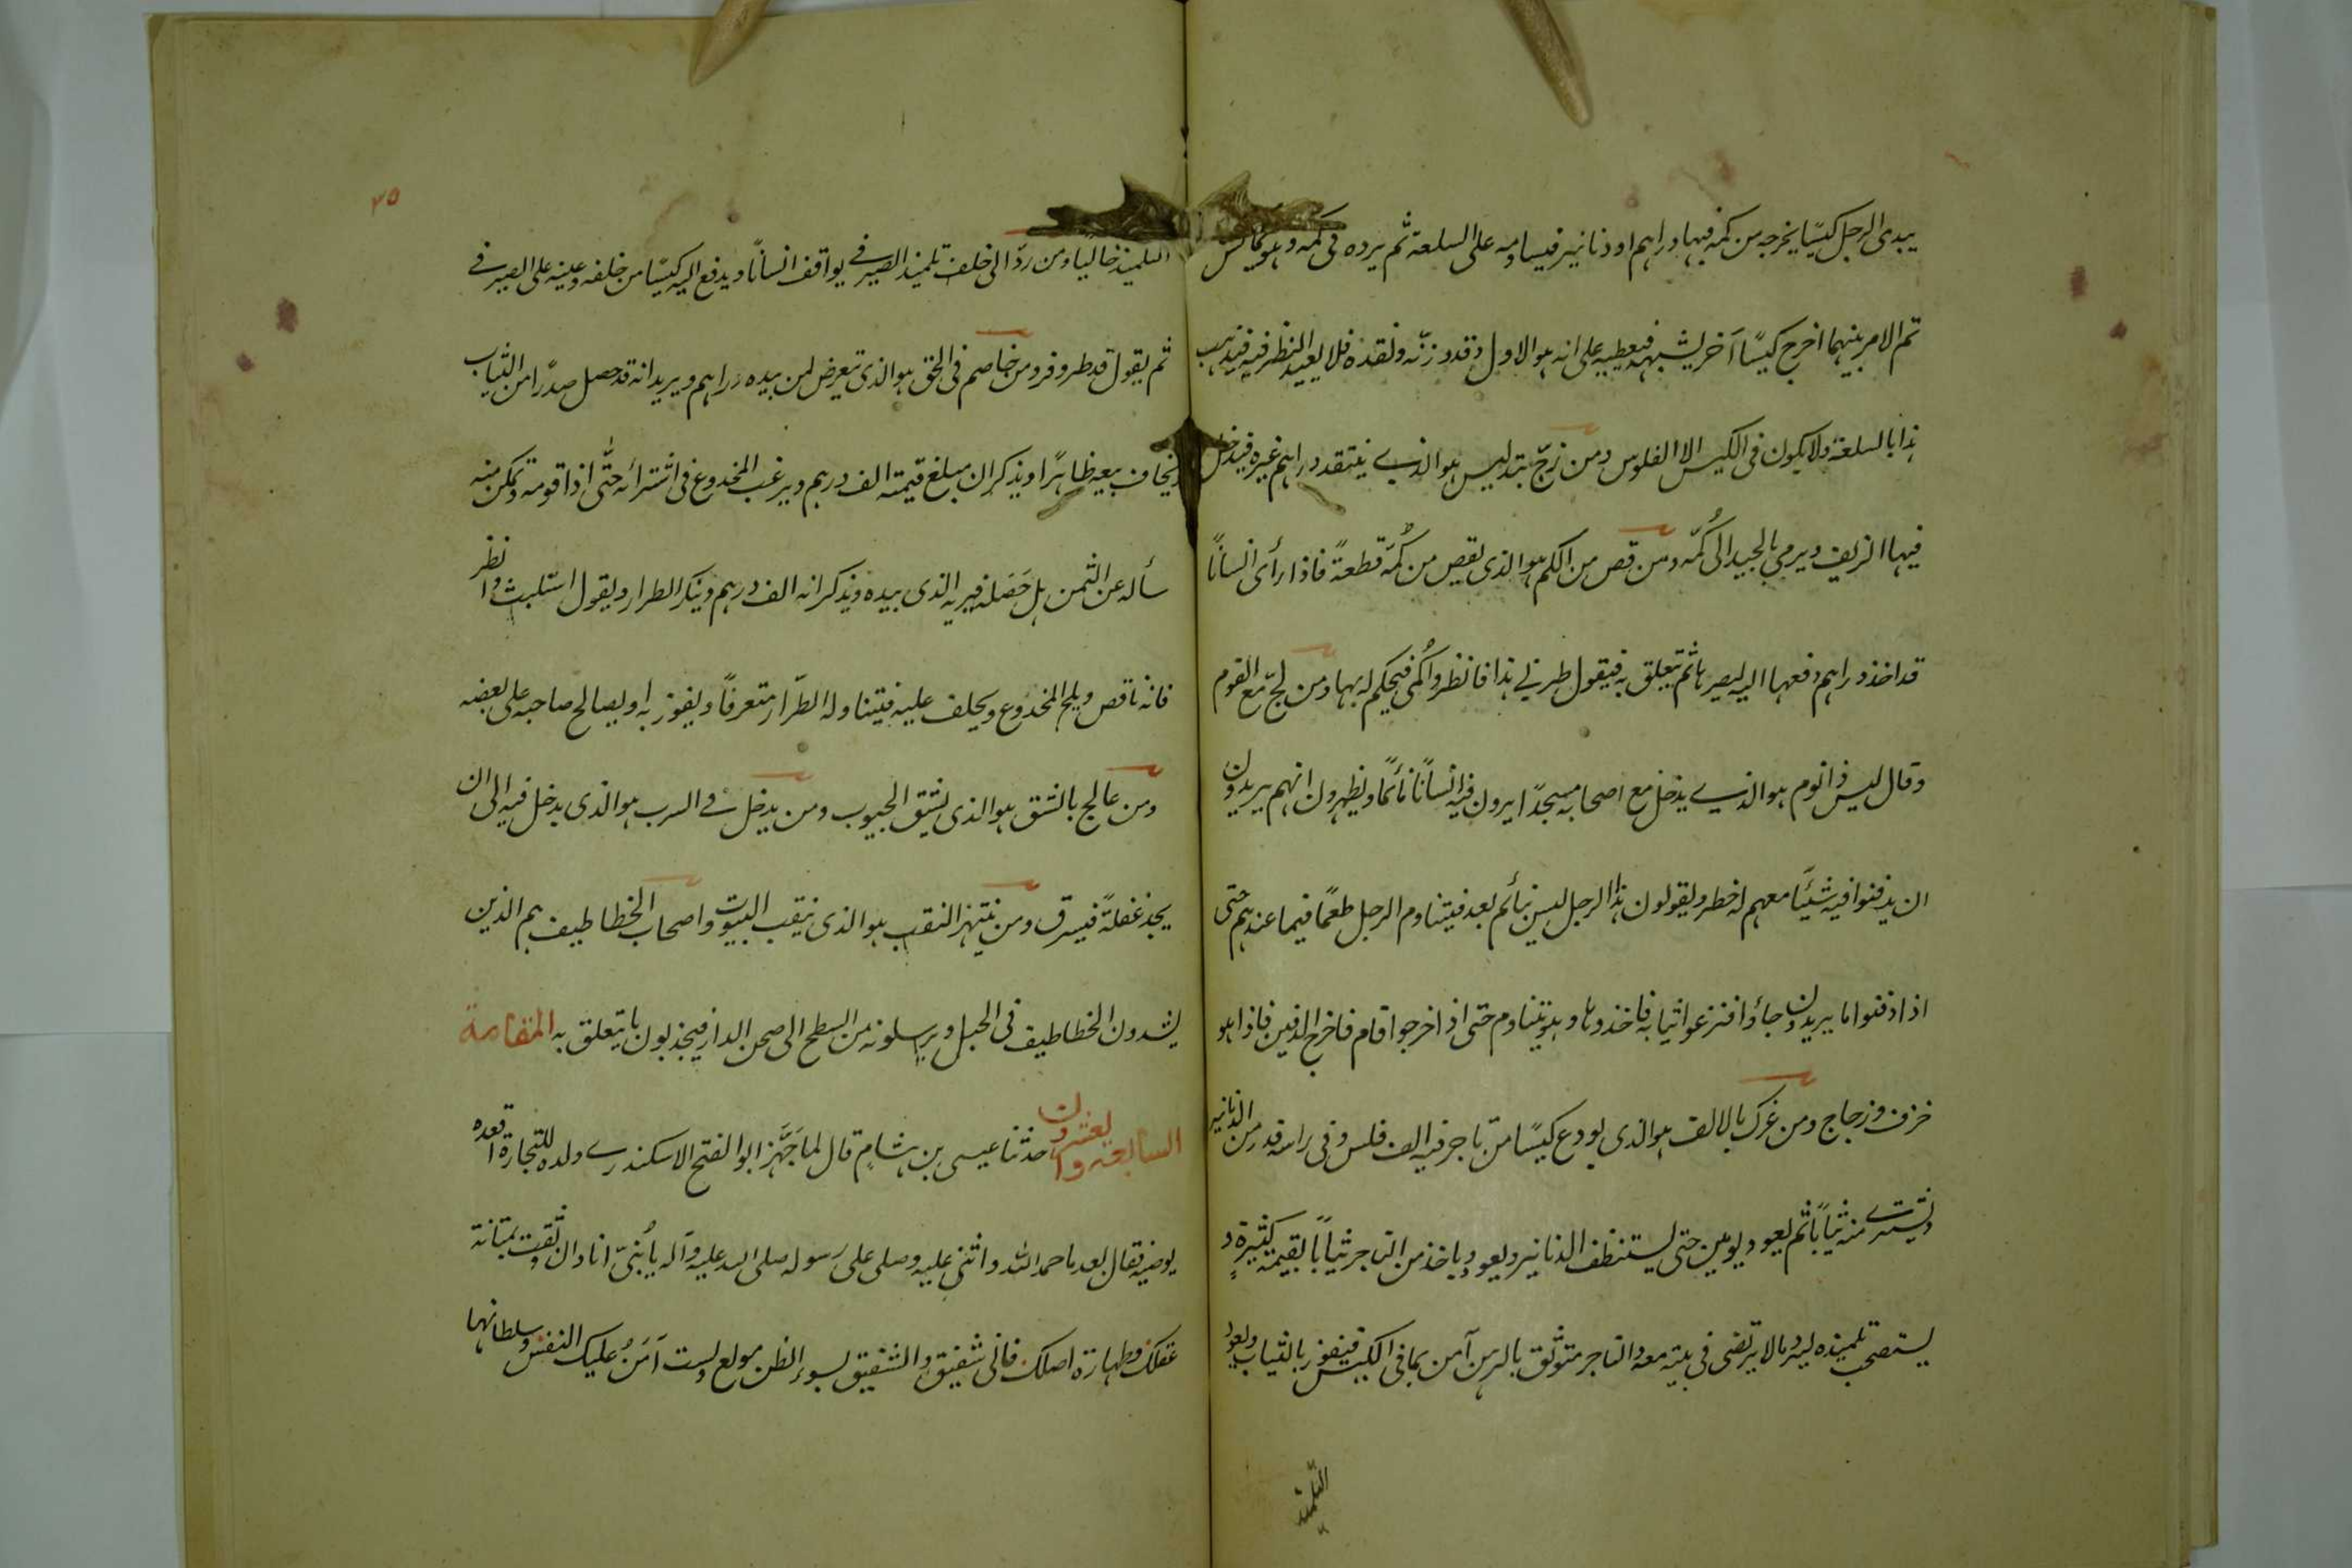 يبدى الرجل كيسًا يخرجه من كمه فيها دراهم او دنانير فيساومه على السلعة ثم يرده فى كمه وهو يماكس
تم الامر بينهما اخرج كيسًا آخر يشبهه فيعطيه على انه هو الاول وقد وزنه ونقده فلا يعيد النظر فيه فيذهب
هذا بالسلعة ولا يكون فى الكيس الا الفلوس ومن زجّ بتدليس هو الذى ينتقد دراهم غيره فيدخل
فيها الزيف ويرمي بالجيد الى كُمّه ومن قص من الكم هو الذى يقص من كُمّه قطعةً فاذا رأى انسانًا
قد اخذ دراهم دفعها اليه ليصرها ثم يتعلق به فيقول طرنى هذا فانظروا كُمى فيحكم له بها ومن لجّ مع القوم
وقال ليس ذا نوم هو الذى يدخل مع اصحابه مسجدًا يرون فيه انسانًا نائمًا ويظهرون انهم يريدون
ان يدفنوا فيه شيئًا معهم له خطر ويقولون هذا الرجل ليس بنائم بعد فيتناوم الرجل طعمًا فيما عندهم حتى
اذا دفنوا ما يريدون جاؤا فنزعوا ثيابه فاخذوها وهو يتناوم حتى اذا خرجوا قام فاخرج الدفين فاذا هو
خزف وزجاج ومن غرك بالالف هو الذى يودع كيسًا من تاجر فيه الف فلس وفى راسه قدر من الدنانير
ويشترى منه ثيابًا ثم يعود يومين حتى يستنظف الدنانير ويعود ياخذ من التاجر ثيابًا بقيمة كثيرة و
يستصحب تلميذه ليرد مالا يرتضى فى بيته معه والتاجر متوثق بالرهن آمن بما فى الكيس فيفوز بالثياب ويعود
التلميذ
٣٥
التلميذ خاليًا ومن ردّ الى خلف تلميذ الصيرفى يواقف انسانًا ويدفع اليه كيسًا من خلفه وعينه على الصيرفى
ثم يقول قد طر وفر ومن خاصم فى الحق هو الذى تعرض لمن بيده دراهم ويريد انه قد حصل صدرًا من الثياب
يخاف بيعه ظاهرًا ويذكر ان مبلغ قيمته الف درهم ويرغب المخدوع فى اشترائه حتّى اذا قومه وتمكن منه
سأله عن الثمن هل حَصَله فيريه الذى بيده ويذكر انه الف درهم وينكر الطرار ويقول استلبث وانظر
فانه ناقص ويلح المخدوع ويحلف عليه فيتناوله الطرّار متعرفًا ويفوز به او يصالح صاحبه على بعضه
ومن عالج بالشق هو الذى يشق الجيوب ومن يدخل فى السرب هو الذى يدخل فيه الى ان
يجد غفلةً فيسرق ومن ينتهز النقب هو الذى ينقب البيوت واصحاب الخطاطيف هم الذين
يشدون الخطاطيف فى الحبل ويرسلونه من السطح الى صحن الدار فيجذبون ما يتعلق به المقامة
السابعة والعشرون حدثنا عيسى بن هشامٍ قال لما جَهَّز ابو الفتح الاسكندرى ولده للتجارة اقعده
يوصيه فقال بعد ما حمد الله واثنى عليه وصلى على رسوله صلى الله عليه وآله يا بُنىّ انا وان وثقت بمتانة
عقلك وطهارة اصلك فانى شفيق والشفيق بسوء الظن مولع ولست آمَنُ عليك النفس وسلطانها